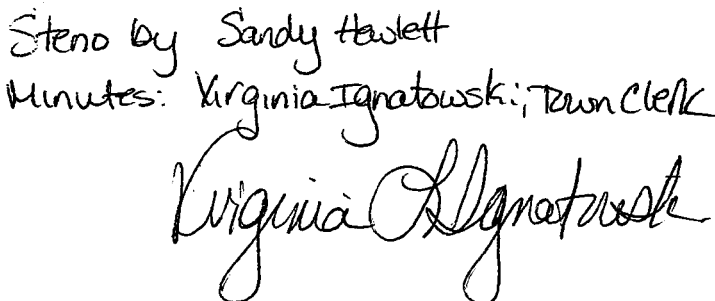 Steno by Sandy Hewlett
Minutes: Virginia Ignatowski, Town Clerk
Virginia L Ignatowsk